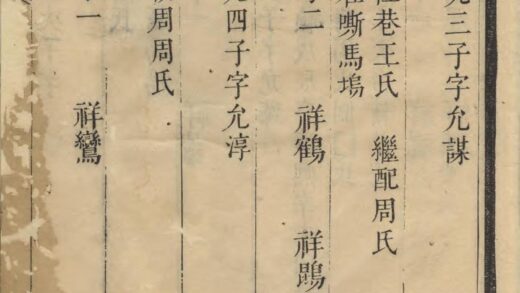 三子字允謀
巷王氏 繼配周氏
嘶馬塢
二 祥鶴 祥
四子字允淳
周周氏
一 祥鸞